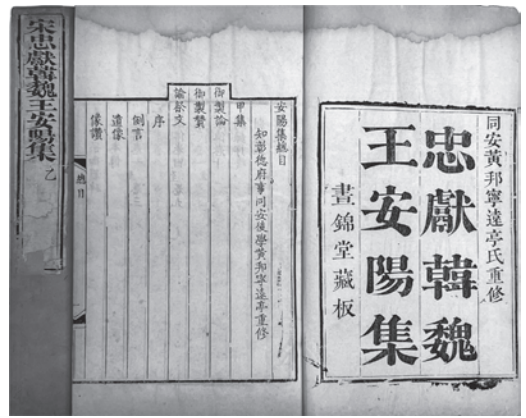 同安黃邦寧遠亭氏重修
忠獻韓魏
王安陽集
晝錦堂藏板
安陽集總目
知彰德府事同安後學黃邦寧遠亭重修
甲集
御製論
御製贊
諭祭文
序
例言
遺像
像讚
總目
宋忠獻韓魏王安陽集 乙